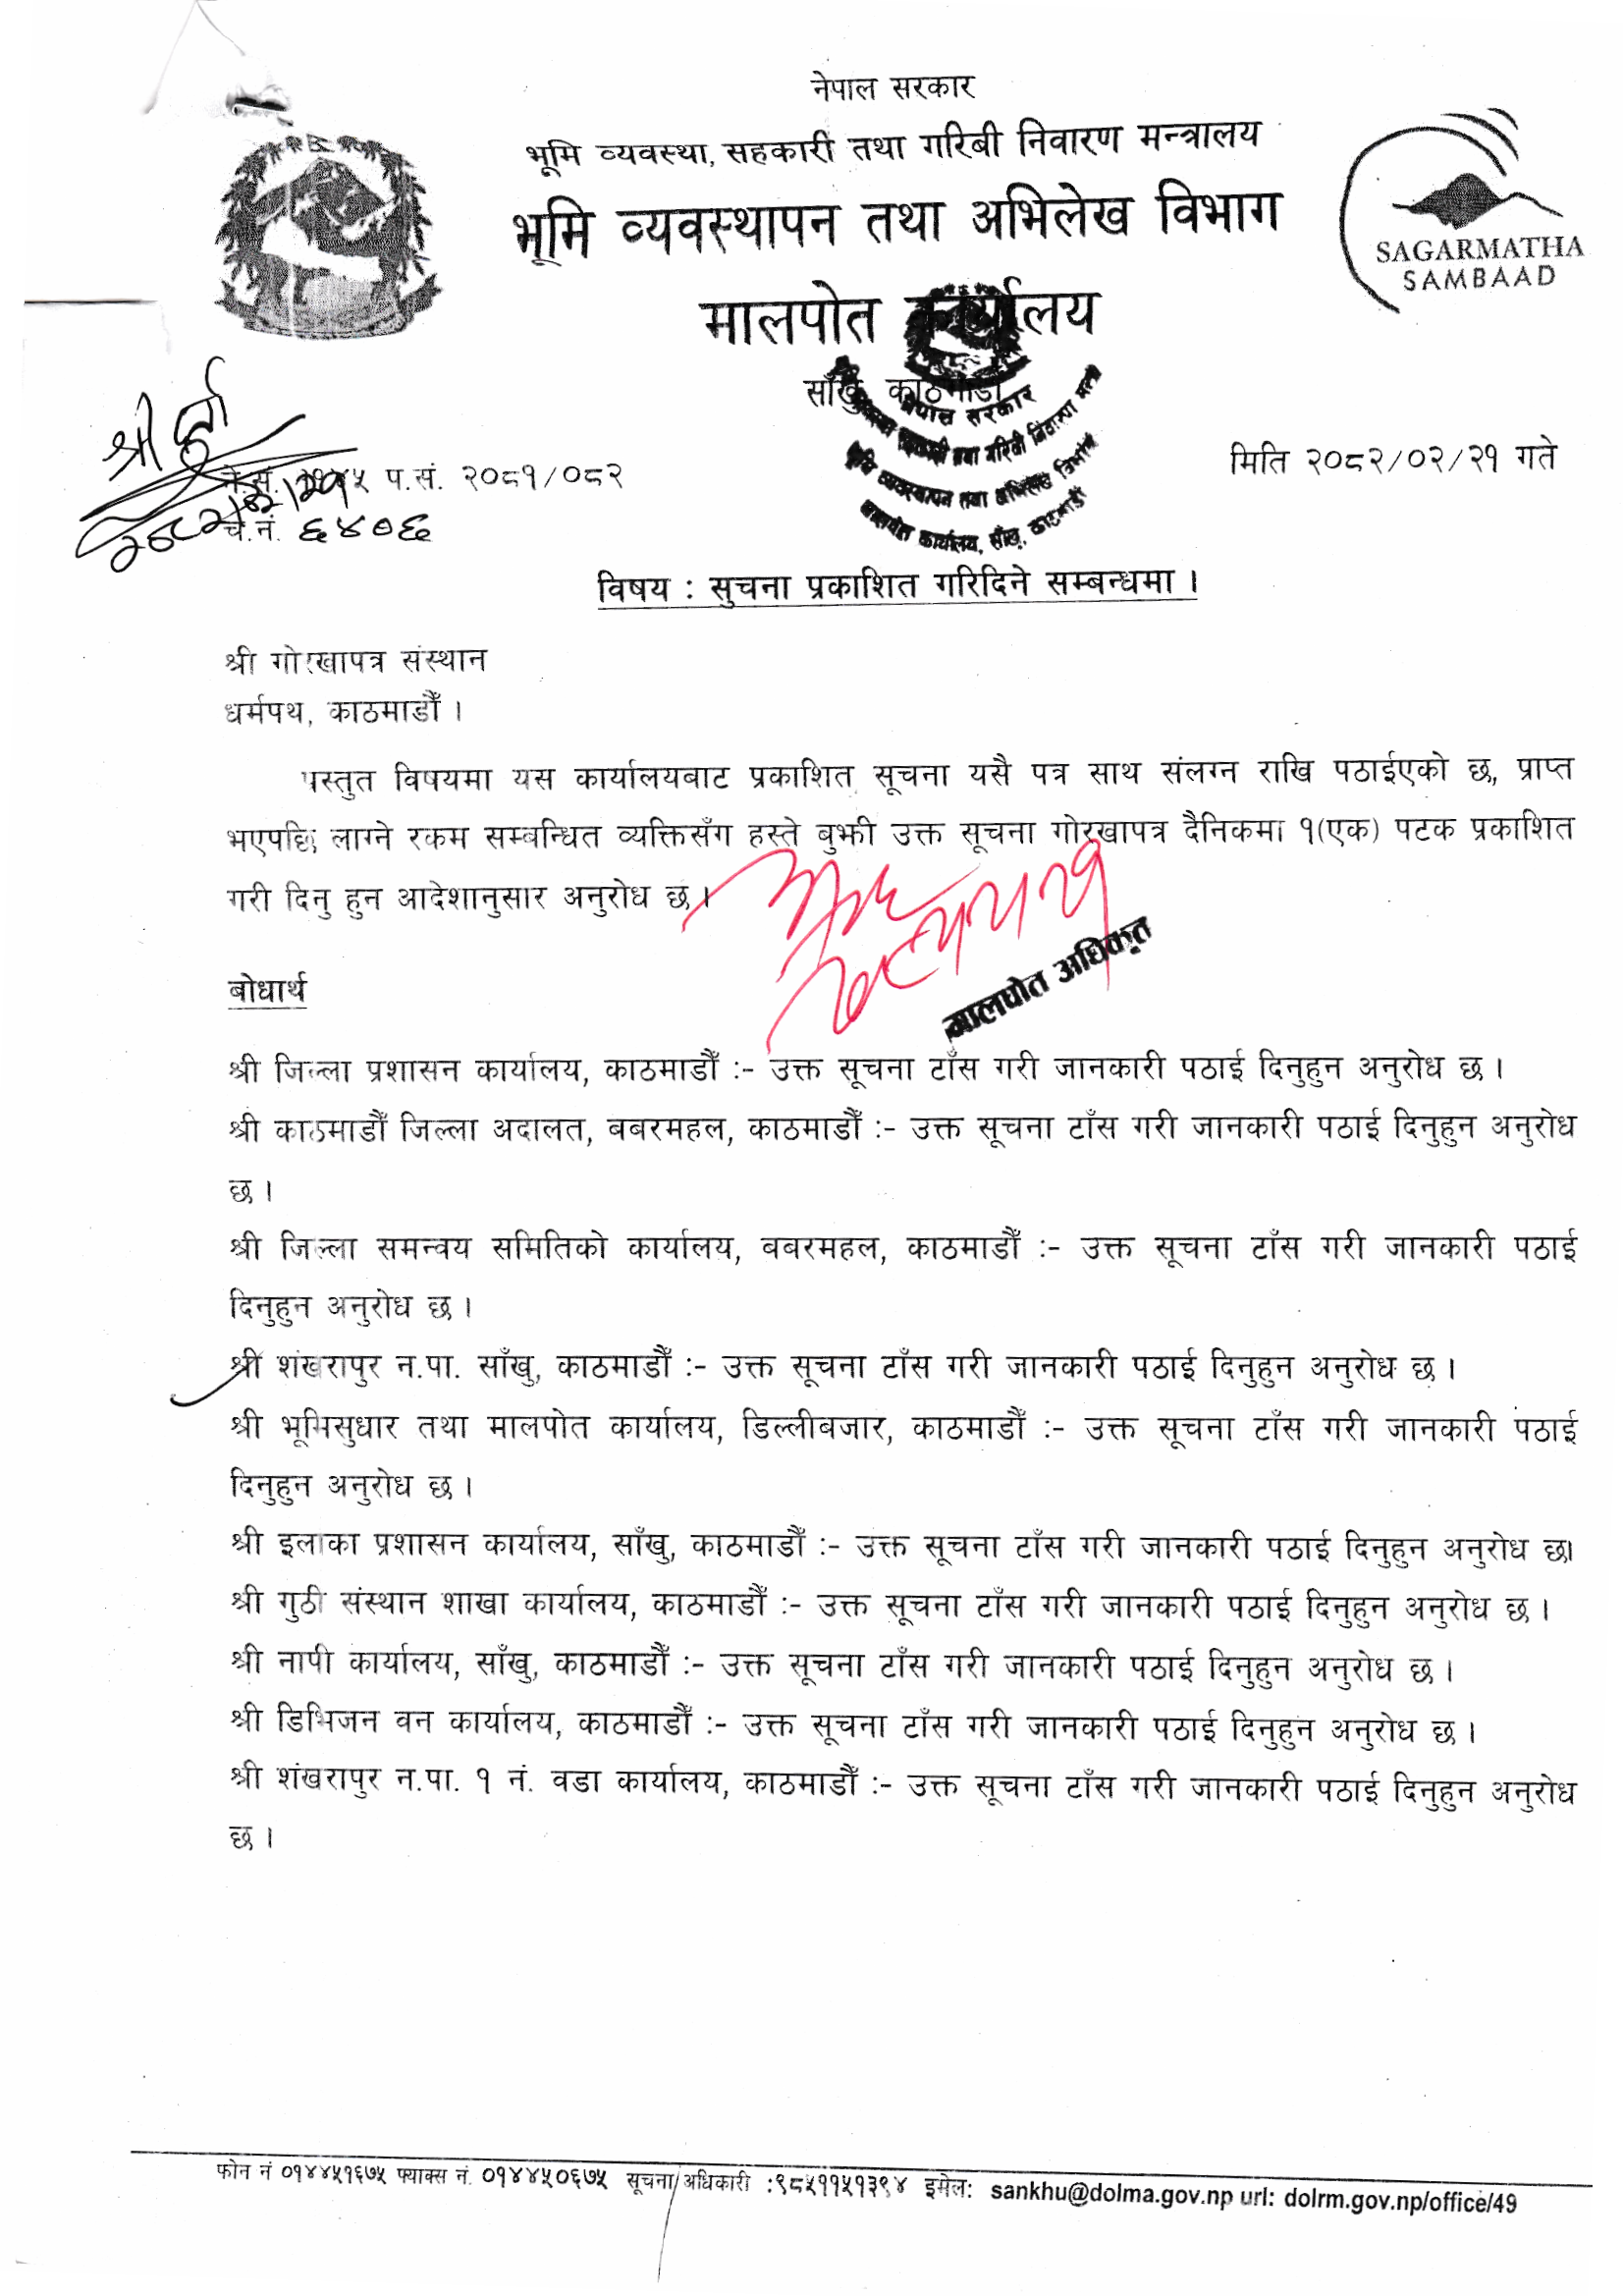 नेपाल सरकार
भूमि व्यवस्था, सहकारी तथा गरिबी निवारण मन्त्रालय
भूमि व्यवस्थापन तथा अभिलेख विभाग
मालपोत कार्यालय
साँखु, काठमाडौं
SAGARMATHA
SAMBAAD
नेपाल सरकार
भूमि व्यवस्थापन तथा अभिलेख विभाग
मालपोत कार्यालय, साँखु, काठमाडौं
श्री दर्ता
प.सं. २०८१/०८२
मिति २०८२/०२/२१ गते
च.नं. ६४०६
विषय : सुचना प्रकाशित गरिदिने सम्बन्धमा ।
श्री गोरखापत्र संस्थान
धर्मपथ, काठमाडौँ ।
प्रस्तुत विषयमा यस कार्यालयबाट प्रकाशित सूचना यसै पत्र साथ संलग्न राखि पठाईएको छ, प्राप्त
भएपछि लाग्ने रकम सम्बन्धित व्यक्तिसँग हस्ते बुझी उक्त सूचना गोरखापत्र दैनिकमा १(एक) पटक प्रकाशित
गरी दिनु हुन आदेशानुसार अनुरोध छ ।
मालपोत अधिकृत
बोधार्थ
श्री जिल्ला प्रशासन कार्यालय, काठमाडौँ :- उक्त सूचना टाँस गरी जानकारी पठाई दिनुहुन अनुरोध छ ।
श्री काठमाडौँ जिल्ला अदालत, बबरमहल, काठमाडौँ :- उक्त सूचना टाँस गरी जानकारी पठाई दिनुहुन अनुरोध
छ ।
श्री जिल्ला समन्वय समितिको कार्यालय, बबरमहल, काठमाडौँ :- उक्त सूचना टाँस गरी जानकारी पठाई
दिनुहुन अनुरोध छ ।
श्री शंखरापुर न.पा. साँखु, काठमाडौँ :- उक्त सूचना टाँस गरी जानकारी पठाई दिनुहुन अनुरोध छ ।
श्री भूमिसुधार तथा मालपोत कार्यालय, डिल्लीबजार, काठमाडौँ :- उक्त सूचना टाँस गरी जानकारी पठाई
दिनुहुन अनुरोध छ ।
श्री इलाका प्रशासन कार्यालय, साँखु, काठमाडौँ :- उक्त सूचना टाँस गरी जानकारी पठाई दिनुहुन अनुरोध छ।
श्री गुठी संस्थान शाखा कार्यालय, काठमाडौँ :- उक्त सूचना टाँस गरी जानकारी पठाई दिनुहुन अनुरोध छ ।
श्री नापी कार्यालय, साँखु, काठमाडौँ :- उक्त सूचना टाँस गरी जानकारी पठाई दिनुहुन अनुरोध छ ।
श्री डिभिजन वन कार्यालय, काठमाडौँ :- उक्त सूचना टाँस गरी जानकारी पठाई दिनुहुन अनुरोध छ ।
श्री शंखरापुर न.पा. १ नं. वडा कार्यालय, काठमाडौँ :- उक्त सूचना टाँस गरी जानकारी पठाई दिनुहुन अनुरोध
छ ।
फोन नं ०१४४५१६७५ फ्याक्स नं. ०१४४५०६७५ सूचना अधिकारी :९८५११५१३९४ इमेल: sankhu@dolma.gov.np url: dolrm.gov.np/office/49